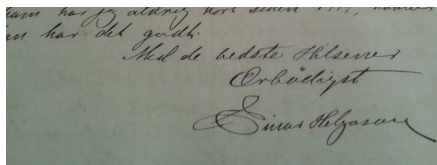 har jeg aldrig hört siden
han har det godt.
Med de bedste Hilsener
Ærbödigst
Einar Helgason